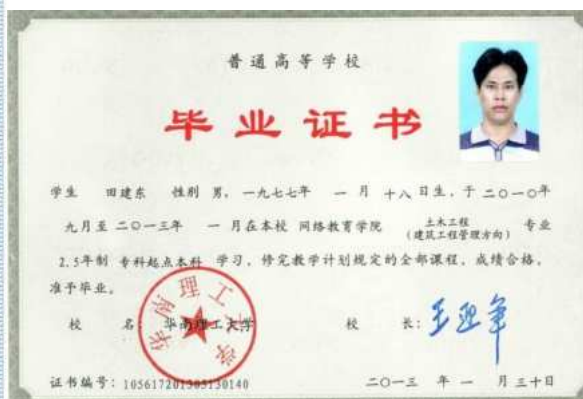 普通高等学校
毕业证书
学生 田建东 性别 男，一九七七年 一 月 十八 日生，于 二〇一〇年
九月至 二〇一三年 一 月在本校 网络教育学院 土木工程（建筑工程管理方向） 专业
2.5年制 专科起点本科 学习，修完教学计划规定的全部课程，成绩合格，
准予毕业。
校 名：华南理工大学 校 长：王迎军
华南理工大学
证书编号：105617201305130140 二〇一三 年 一 月 三十日